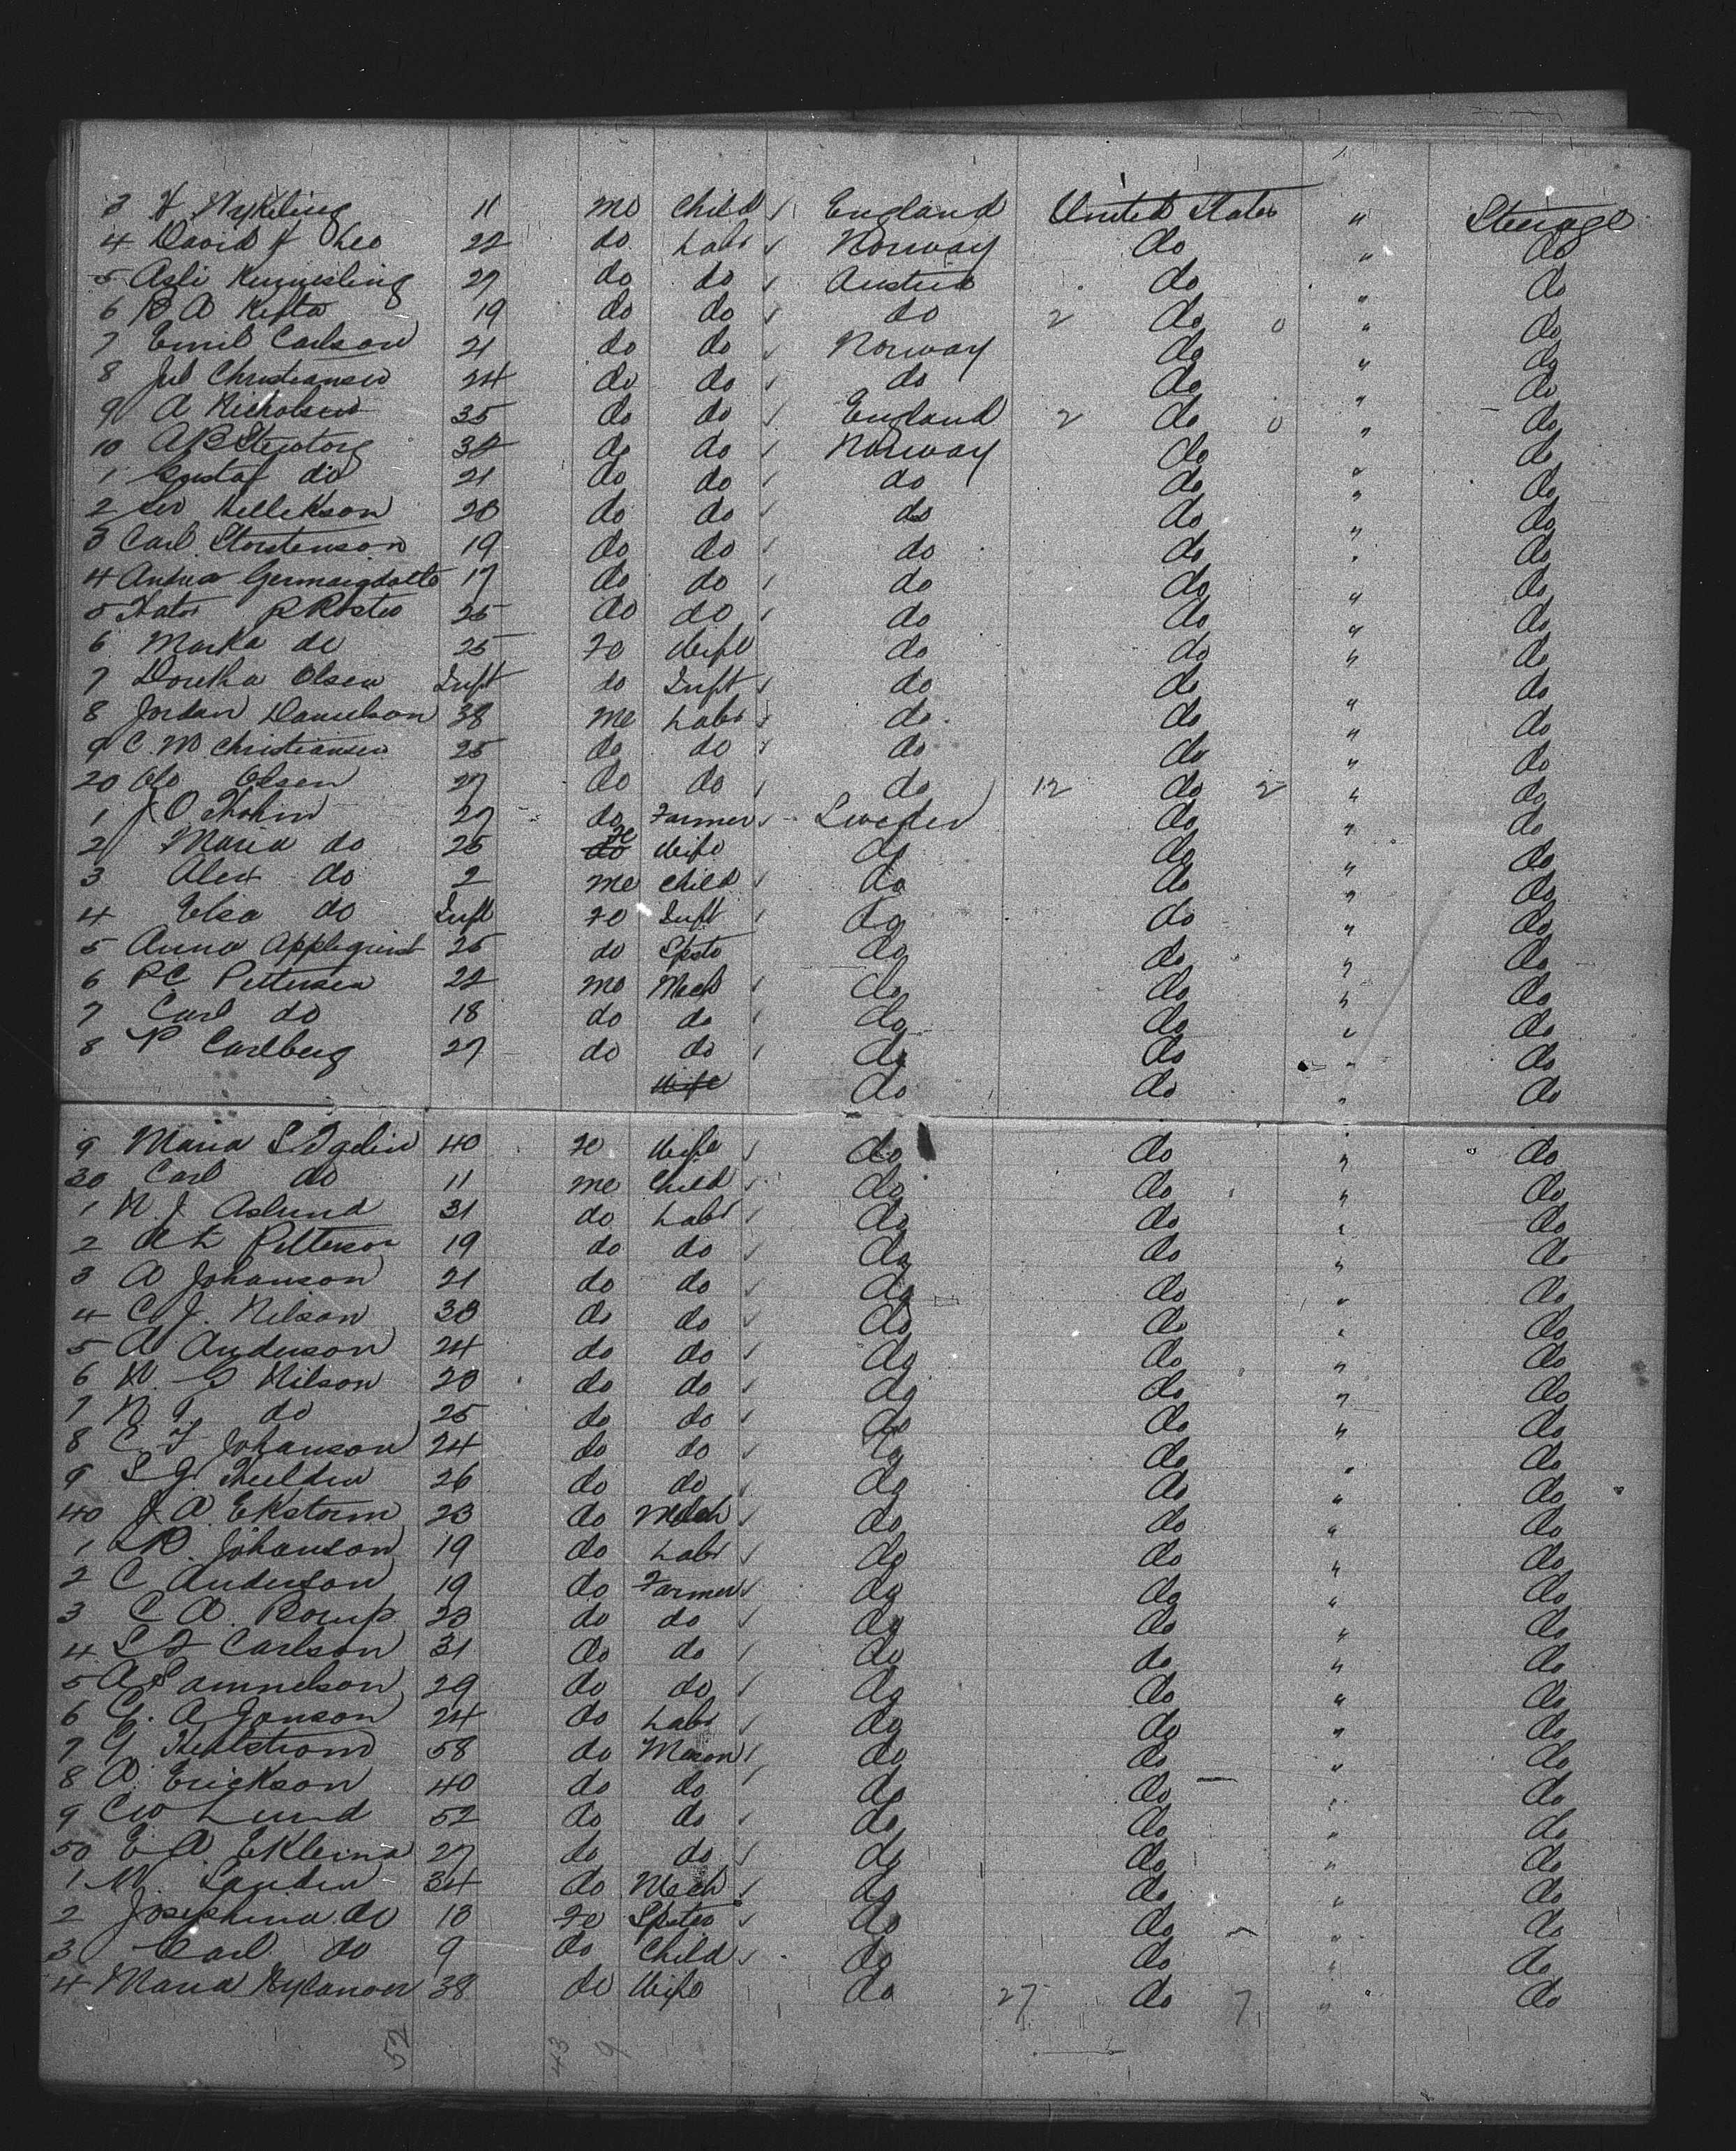 3 H Nykiling 11 Me Child ✓ England United States " Steerage
4 David J Leo 22 do Labr ✓ Norway do " do
5 Asli 27 do do ✓ Austria do " do
6 B A Kefta 19 do do ✓ do 2 do 0 " do
7 Emil Carlson 21 do do ✓ Norway do " do
8 Jul Christiansen 24 do do ✓ do do " do
9 A Nicholsen 35 do do ✓ England 2 do 0 " do
10 A B 32 do do ✓ Norway do " do
1 Gustaf do 21 do do ✓ do do " do
2 Kellekson 20 do do ✓ do do " do
3 Carl Storstenson 19 do do ✓ do do " do
4 Anna 17 do do ✓ do do " do
5 25 do do ✓ do do " do
6 Marka do 25 Fe Wife do do " do
7 Doretha Olsen Inft do Inft ✓ do do " do
8 Jordan Danielson 38 Me Labr ✓ do do " do
9 C. M Christiansen 25 do do ✓ do do " do
20 Olo Olsen 27 do do ✓ do 12 do 2 " do
1 J O Thohin 27 do Farmer ✓ Sweden do " do
2 Maria do 25 do Fe Wife do do " do
3 Alex do 2 Me Child ✓ do do " do
4 Elsa do Inft Fe Inft ✓ do do " do
5 Anna Applequist 25 do Spstr do do " do
6 P C Pettersen 22 Me Mech ✓ do do " do
7 Carl do 18 do do ✓ do do " do
8 P Carlberg 27 do do ✓ do do " do
Wife do do " do
9 Maria S 40 Fe Wife ✓ do do " do
30 Carl do 11 Me Child ✓ do do " do
1 N. J. Aslund 31 do Labr ✓ do do " do
2 A L Petterson 19 do do ✓ do do " do
3 A Johanson 21 do do ✓ do do " do
4 C J. Nelson 30 do do ✓ do do " do
5 A Anderson 24 do do ✓ do do " do
6 N. G Nilson 20 do do ✓ do do " do
7 N. F. do 25 do do ✓ do do " do
8 C F Johanson 24 do do ✓ do do " do
9 S G. 26 do do ✓ do do " do
40 J. A. Ekstorm 23 do Mech ✓ do do " do
1 Johanson 19 do Labr ✓ do do " do
2 C Anderson 19 do Farmer ✓ do do " do
3 C A. Romp 23 do do ✓ do do " do
4 S F Carlson 31 do do ✓ do do " do
5 A Samuelson 29 do do ✓ do do " do
6 G. A Jonson 24 do Labr ✓ do do " do
7 G Hellstrom 58 do Mason ✓ do do " do
8 A Erickson 40 do do ✓ do do " do
9 C W Lund 52 do do ✓ do do " do
50 E A Ekleind 27 do do ✓ do do " do
1 N. Sanden 34 do Mech ✓ do do " do
2 Josephina do 18 Fe Spstr ✓ do do " do
3 Carl do 9 do Child ✓ do do " do
4 Maria Nylander 38 do Wife do 27 do 7 " do
52 43 9